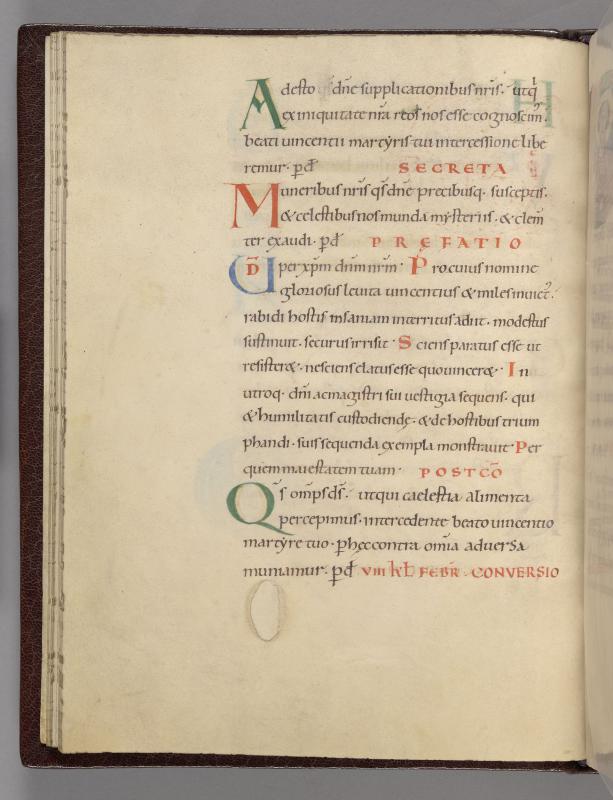 Adesto qs dne supplicationibus nris. ut qi
ex iniquitate nra reos nos esse cognoscim.
beati uincentii martyris tui intercessione libe
remur. pd SECRETA
Muneribus nris qs dne precibusq. susceptis.
& celestibus nos munda mysteriis. & clem
ter exaudi. pd PREFATIO
UD per xpm dnm nrm. Pro cuius nomine
gloriosus leuita uincentius & miles inuict.
rabidi hostis insaniam interritus adiit. modestus
sustinuit. securus irrisit. Sciens paratus esse ut
resister&. nesciens elatus esse quo uincer&. In
utroq. dni ac magistri sui uestigia sequens. qui
& humilitatis custodiendę. & de hostibus trium
phandi. suis sequenda exempla monstrauit. Per
quem maiestatem tuam. POSTCO
Qs omps ds. ut qui caelestia alimenta
percepimus. intercedente beato uincentio
martyre tuo. p hęc contra omia aduersa
muniamur. pd VIII KL FEBR. CONVERSIO